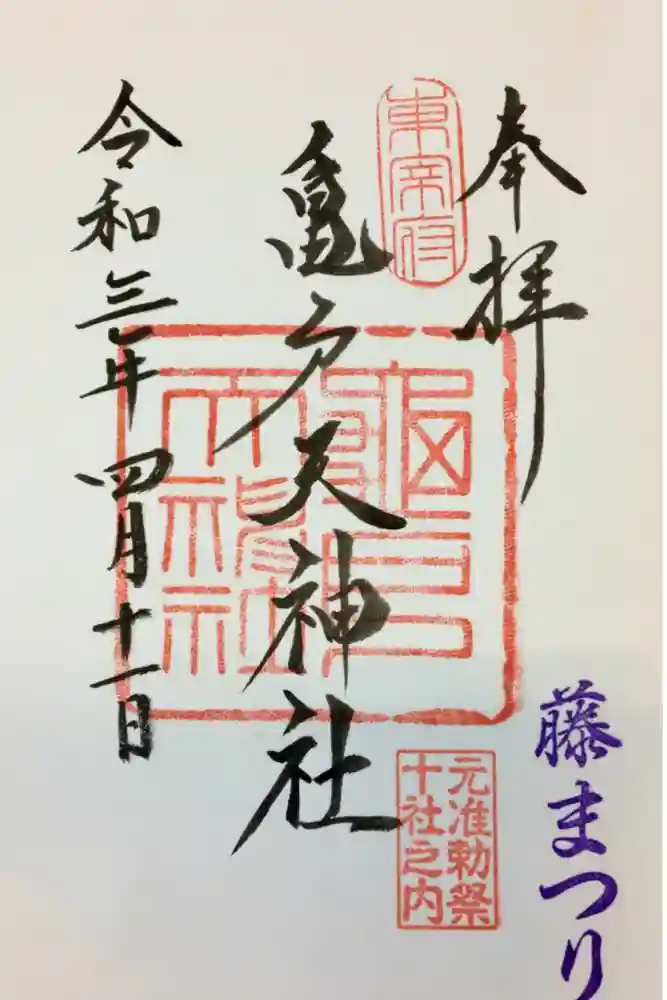 藤まつり
奉拝
東宰府
元准勅祭
十社之内
亀戸天神社
令和三年四月十一日